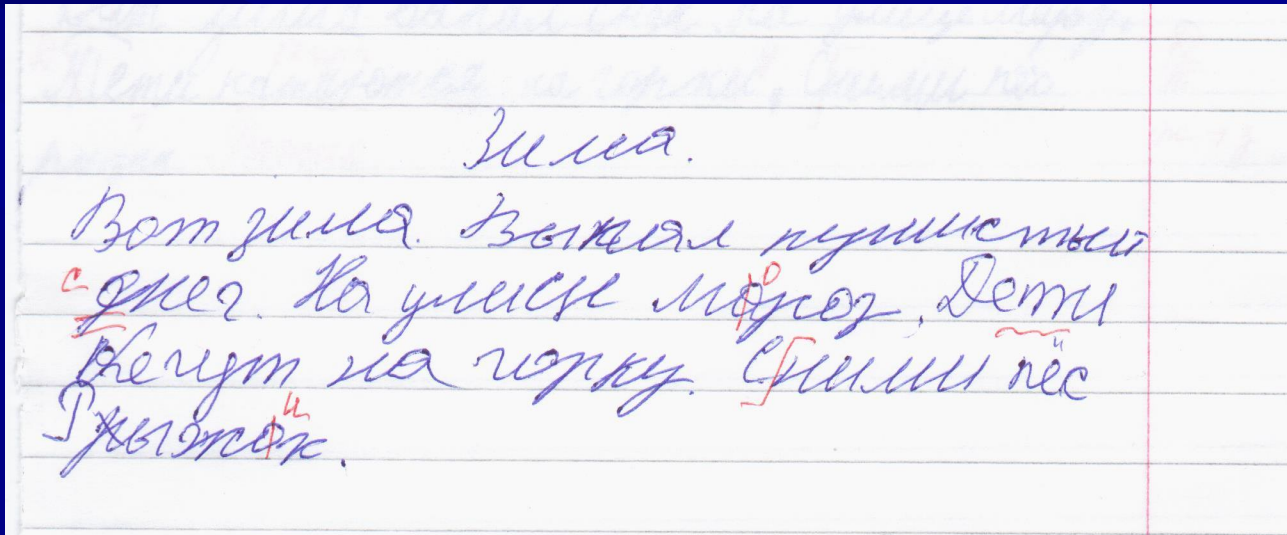 Зима.
Вот зима. Выпал пушистый
днег. На улице мароз. Дети
бегут на горку. Сними пёс
Рыжок.